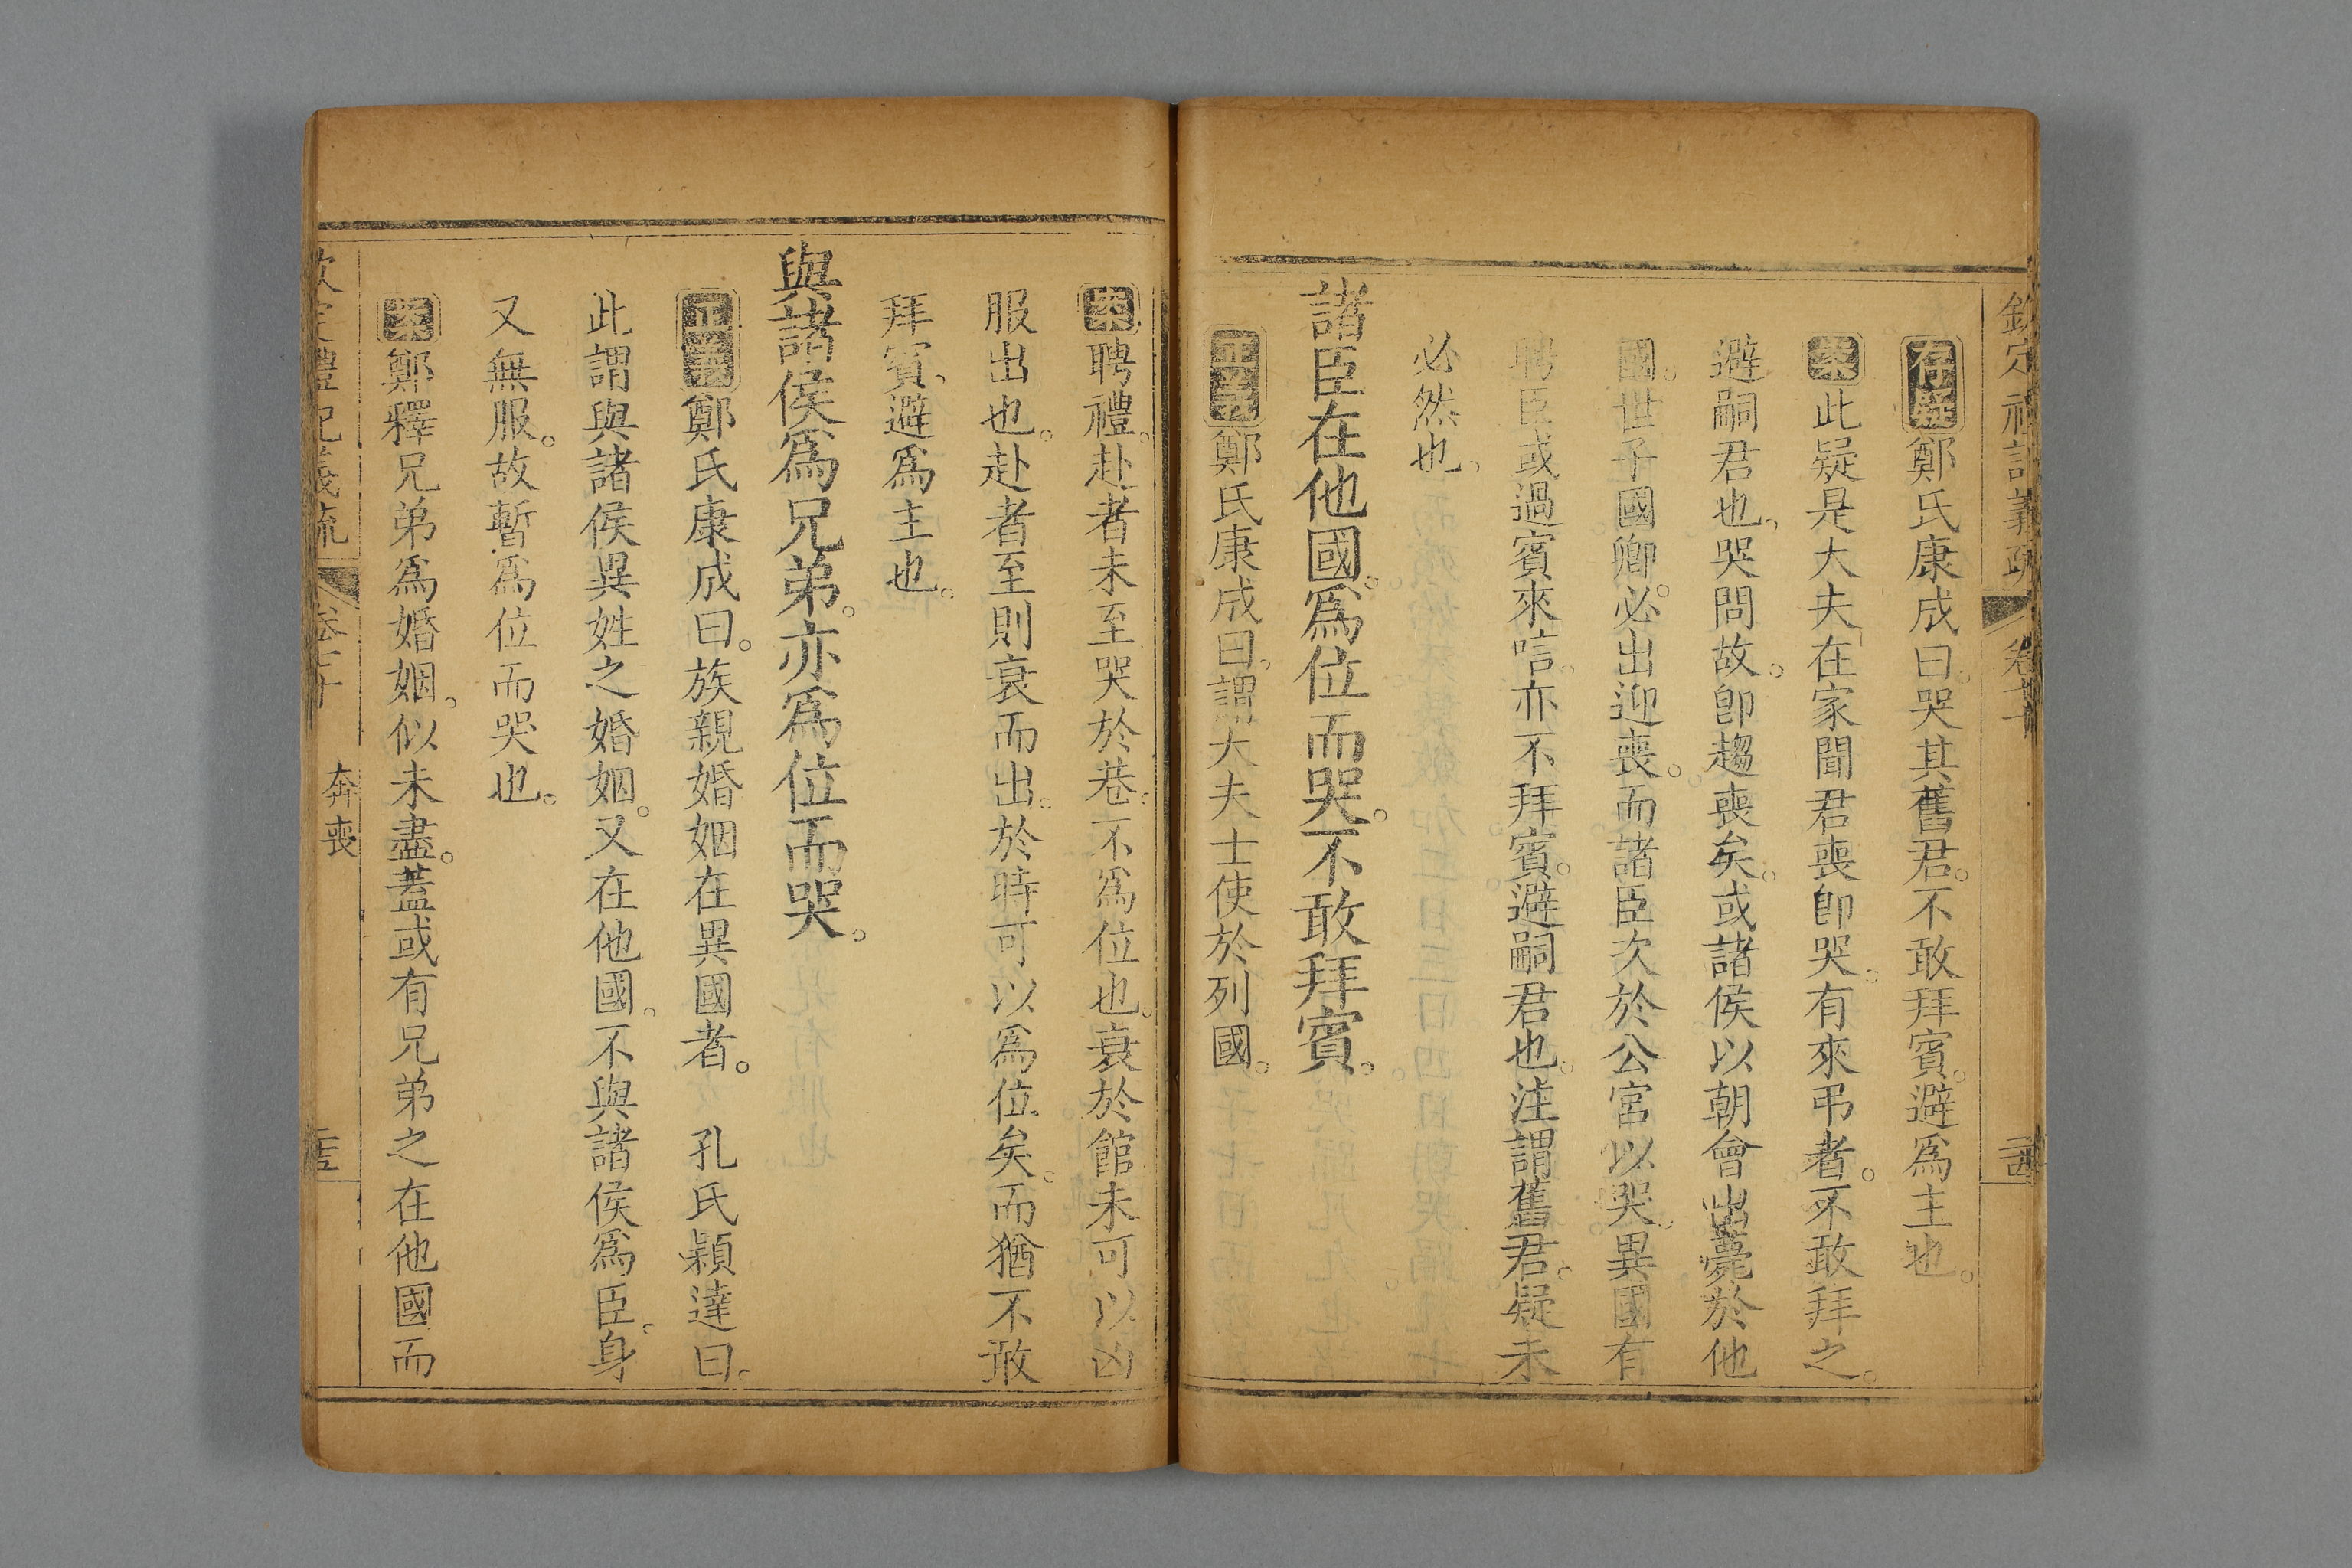 欽定禮記義疏 卷七十
存疑鄭氏康成曰。哭其舊君。不敢拜賓。避爲主也。
案此疑是大夫在家聞君喪卽哭。有來弔者。不敢拜之。
避嗣君也。哭問故。卽趨喪矣。或諸侯以朝會出薨於他
國。世子國卿。必出迎喪。而諸臣次於公宮以哭。異國有
聘臣或過賓來唁。亦不拜賓。避嗣君也。注謂舊君。疑未
必然也。
諸臣在他國。爲位而哭。不敢拜賓。
正義鄭氏康成曰。謂大夫士使於列國。
案聘禮。赴者未至哭於巷。不爲位也。衰於館未可以凶
服出也。赴者至則衰而出。於時可以爲位矣。而猶不敢
拜賓。避爲主也。
與諸侯爲兄弟。亦爲位而哭。
正義鄭氏康成曰。族親婚姻在異國者。 孔氏穎達曰。
此謂與諸侯異姓之婚姻。又在他國。不與諸侯爲臣。身
又無服。故暫爲位而哭也。
案鄭釋兄弟爲婚姻。似未盡。蓋或有兄弟之在他國而
欽定禮記義疏 卷七十 奔喪